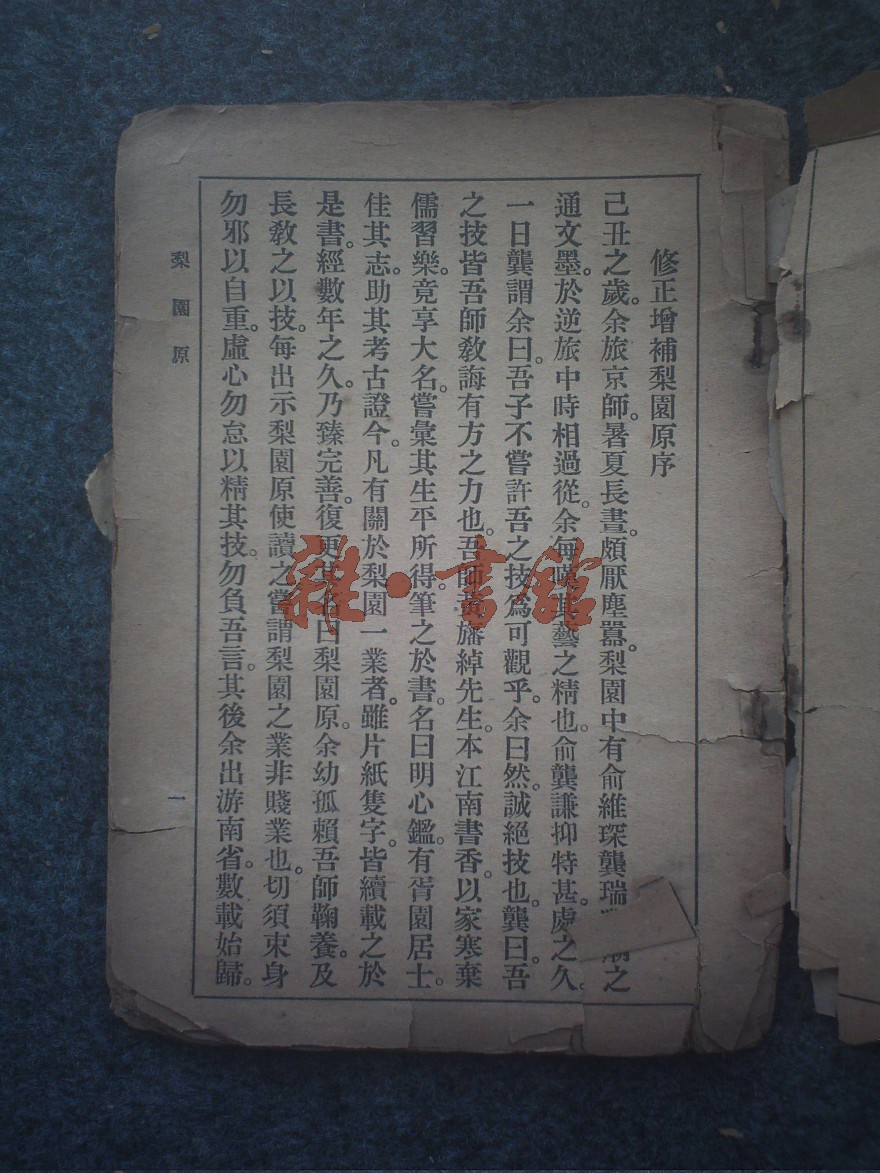 修正增補梨園原序
己丑之歲。余旅京師。暑夏長晝。頗厭塵囂。梨園中有俞維琛龔瑞之
通文墨。於逆旅中時相過從。余每嘆其藝之精也。俞龔謙抑特甚。處之久。
一日龔謂余曰。吾子不嘗許吾之技爲可觀乎。余曰然。誠絕技也。龔曰。吾
之技皆吾師敎誨有方之力也。吾師黃旛綽先生。本江南書香。以家寒棄
儒習樂。竟享大名。嘗彙其生平所得。筆之於書。名曰明心鑑。有胥園居士。
佳其志。助其考古證今。凡有關於梨園一業者。雖片紙隻字。皆續載之於
是書。經數年之久。乃臻完善。復更其名曰梨園原。余幼孤賴吾師鞠養。及
長敎之以技。每出示梨園原使讀之嘗謂梨園之業非賤業也。切須束身
勿邪以自重。虛心勿怠以精其技。勿負吾言。其後余出游南省。數載始歸。
梨園原
一
雜·書館